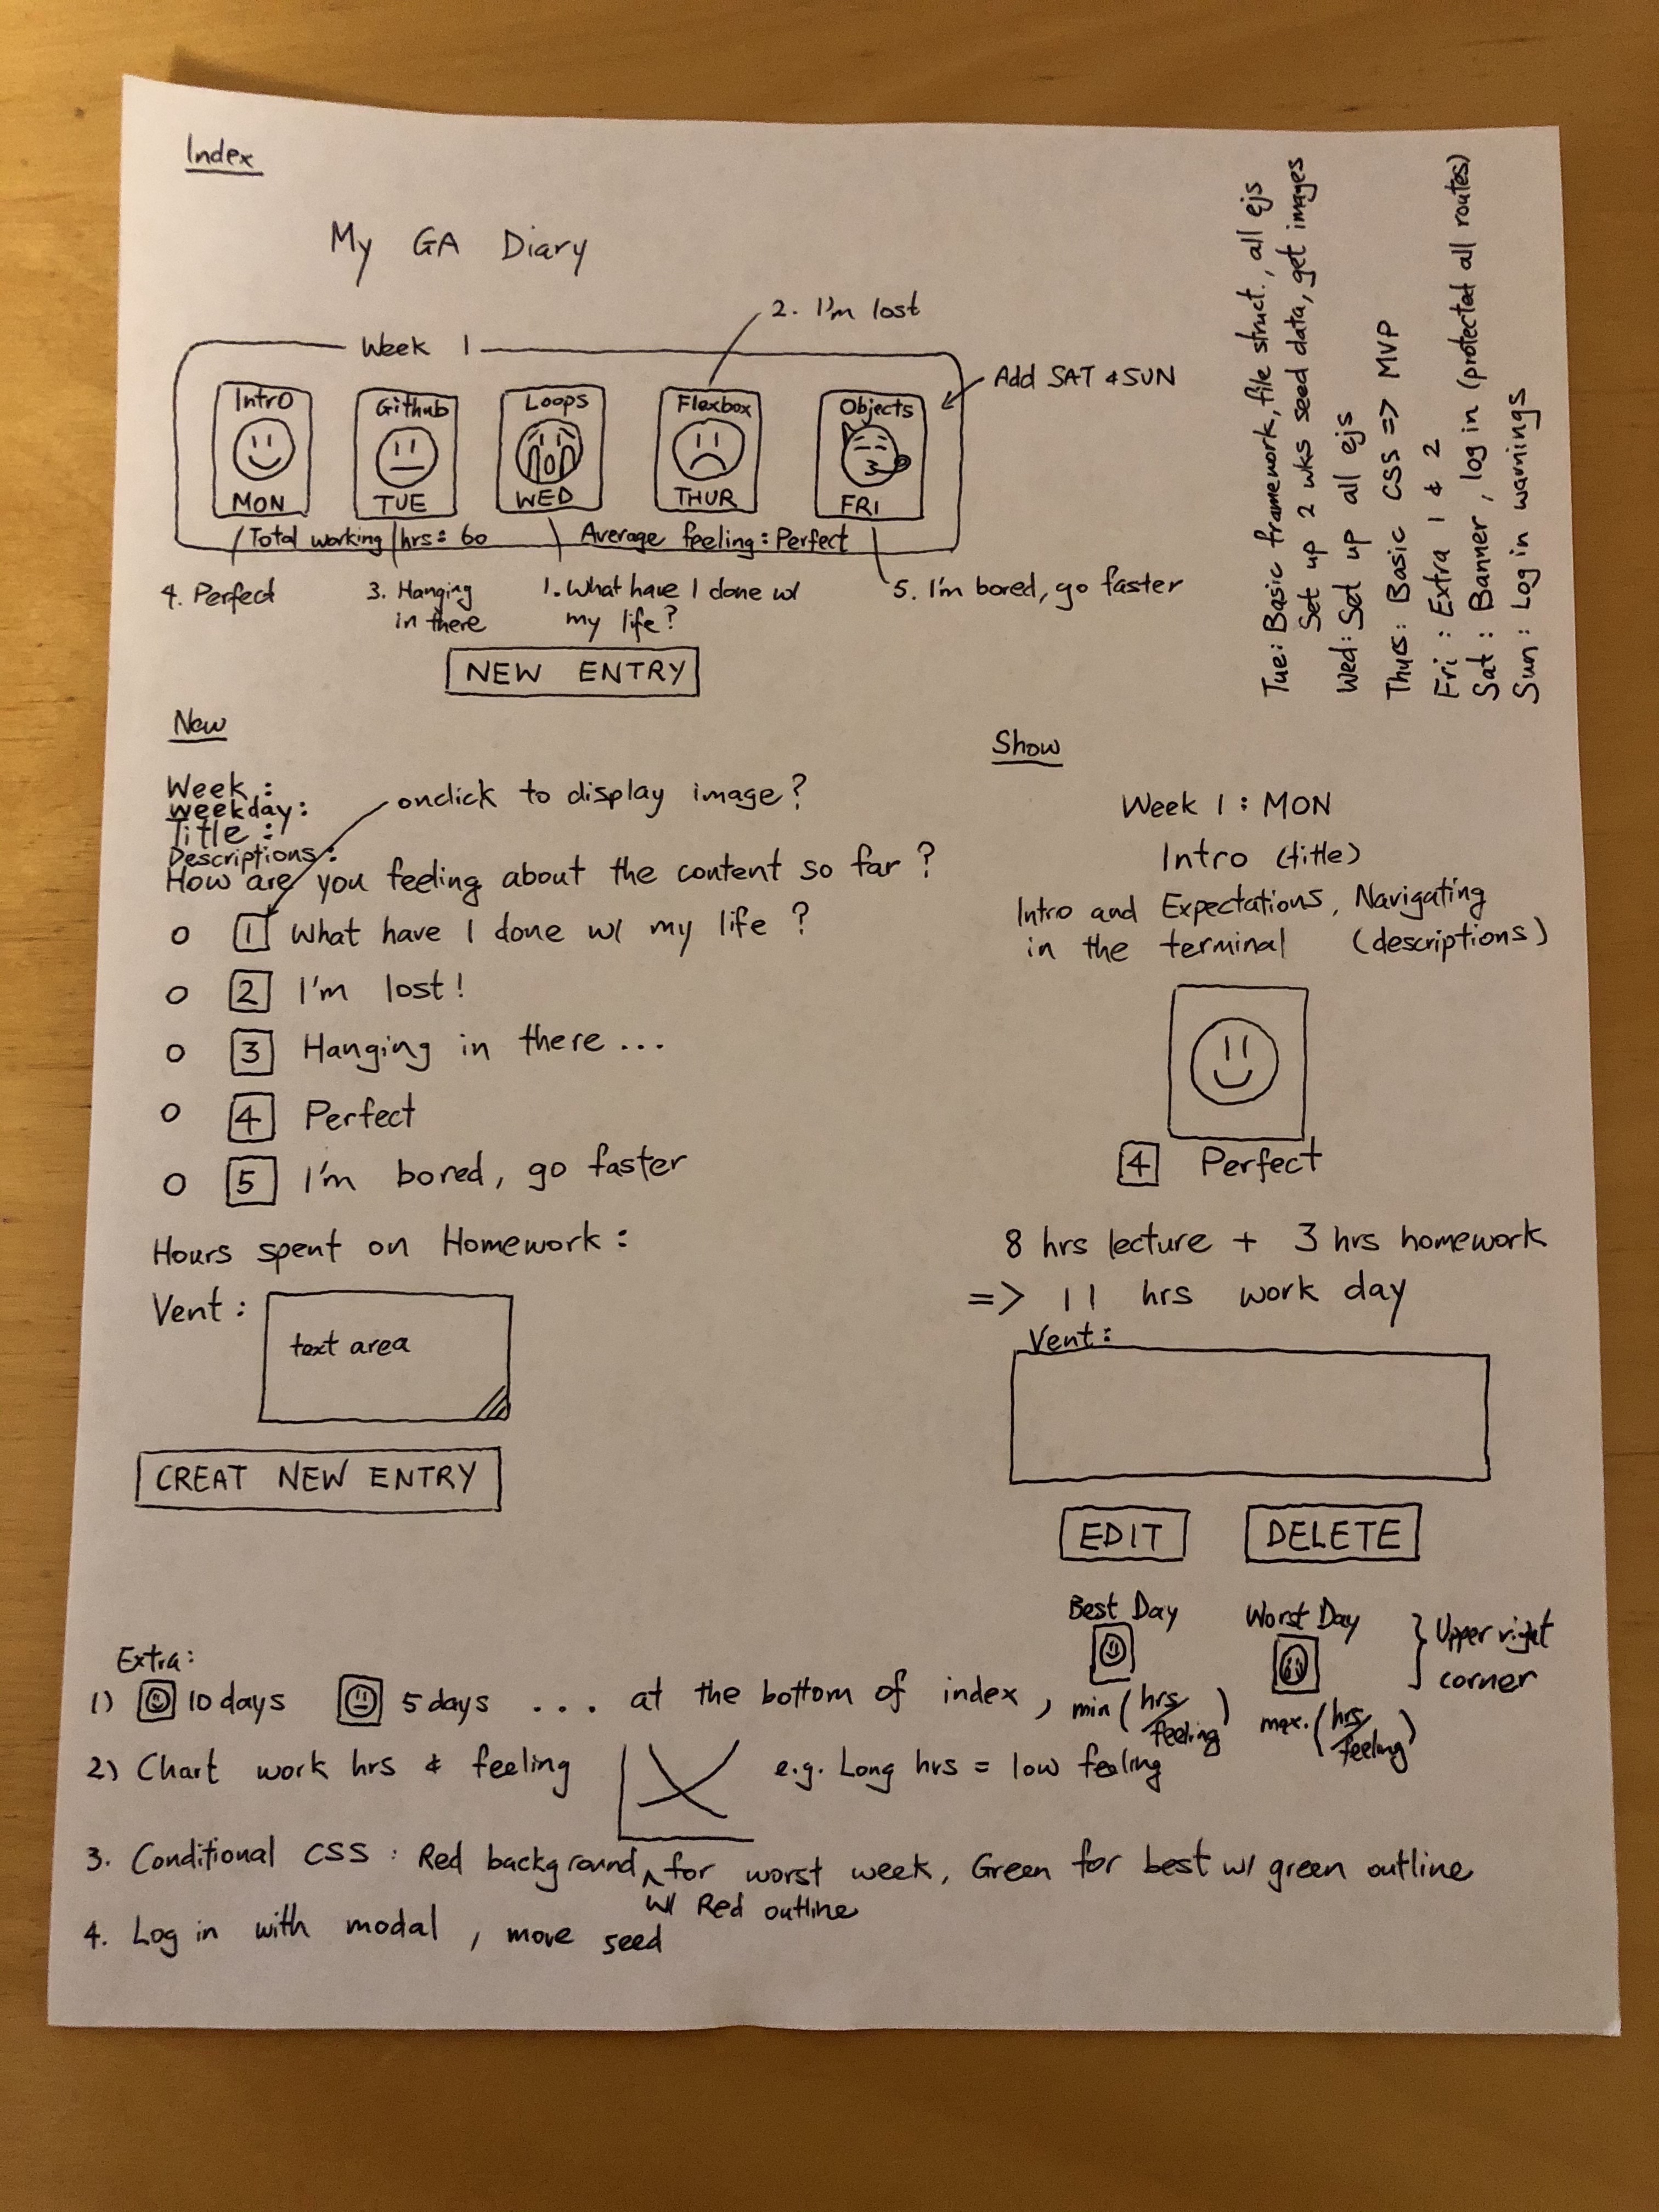 Index
My GA Diary
2. I'm lost
Week 1
Add SAT & SUN
Intro
MON
Github
TUE
Loops
WED
Flexbox
THUR
Objects
FRI
Total working hrs: 60
Average feeling: Perfect
4. Perfect
3. Hanging
in there
1. What have I done w/
my life?
5. I'm bored, go faster
NEW ENTRY
Tue: Basic framework, file struct., all ejs
Set up 2 wks seed data, get images
Wed: Set up all ejs
Thurs: Basic CSS => MVP
Fri : Extra 1 & 2
Sat : Banner, log in (protected all routes)
Sun : Log in warnings
New
Week :
Weekday:
Title :
Descriptions:
onclick to display image?
How are you feeling about the content so far ?
1 What have I done w/ my life ?
2 I'm lost!
3 Hanging in there...
4 Perfect
5 I'm bored, go faster
Hours spent on Homework :
Vent :
text area
CREAT NEW ENTRY
Show
Week 1 : MON
Intro (title)
Intro and Expectations, Navigating
in the terminal (descriptions)
4 Perfect
8 hrs lecture + 3 hrs homework
=> 11 hrs work day
Vent:
EDIT
DELETE
Best Day
Worst Day
} Upper right
corner
min (hrs/feeling)
max. (hrs/feeling)
Extra:
1) 10 days 5 days ... at the bottom of index,
2) Chart work hrs & feeling
e.g. Long hrs = low feeling
3. Conditional CSS : Red background ^ for worst week, Green for best w/ green outline
w/ Red outline
4. Log in with modal, move seed